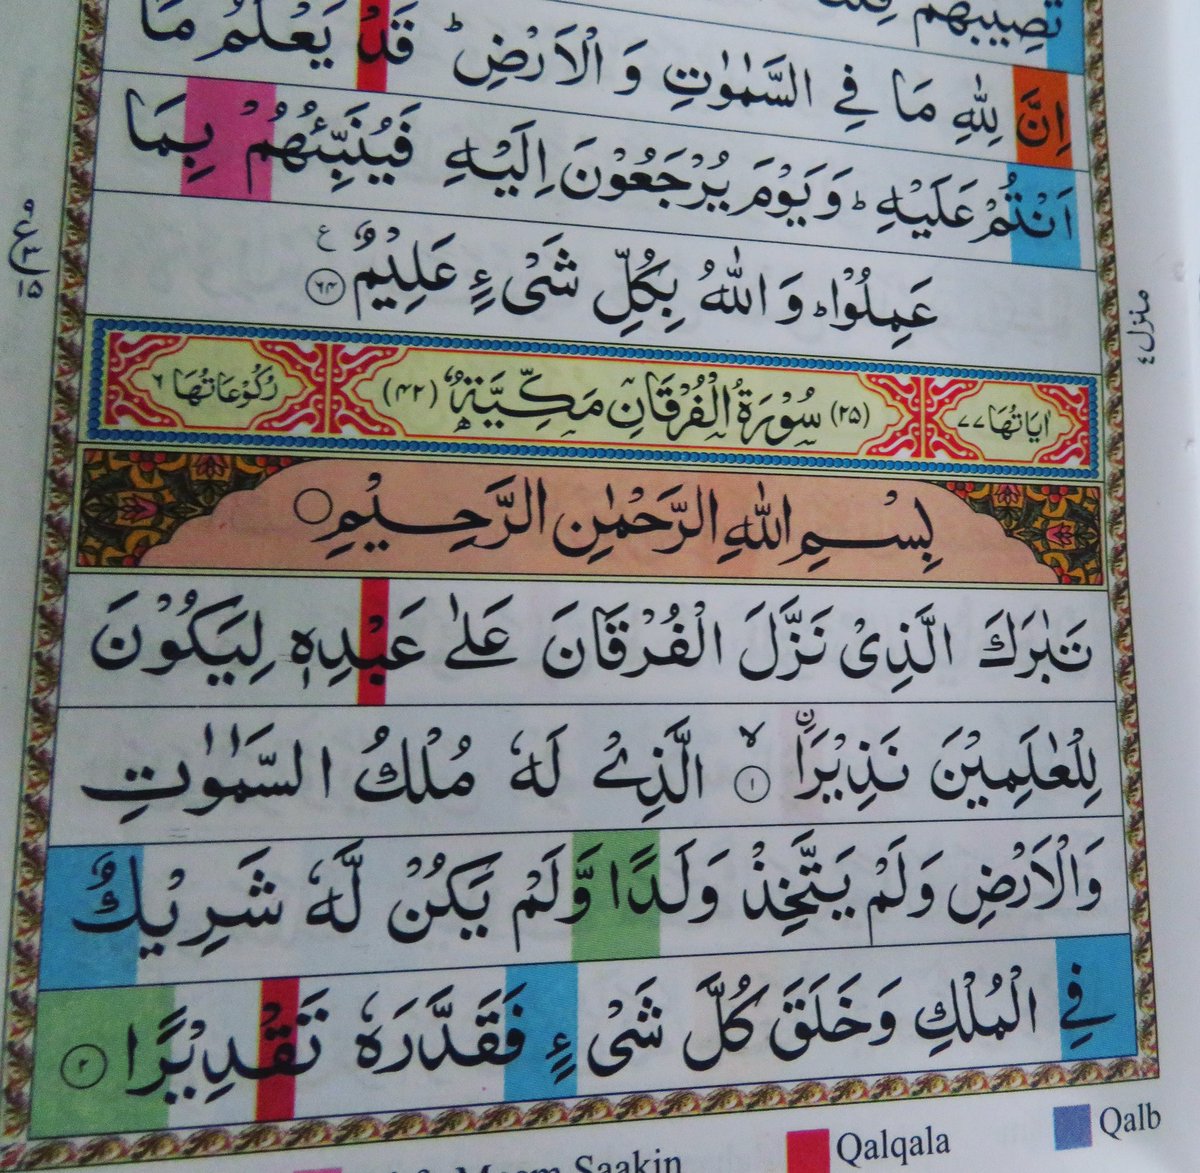 تُصِيْبَهُمْ
اِنَّ لِلّٰهِ مَا فِي السَّمٰوٰتِ وَ الْاَرْضِ ؕ قَدْ يَعْلَمُ مَاۤ
اَنْتُمْ عَلَيْهِ ؕ وَ يَوْمَ يُرْجَعُوْنَ اِلَيْهِ فَيُنَبِّئُهُمْ بِمَا
عَمِلُوْا ؕ وَ اللّٰهُ بِكُلِّ شَیْءٍ عَلِيْمٌ ۶۴ ع
منزل ۴
اٰیَاتُهَا ۷۷ (۲۵) سُوْرَةُ الْفُرْقَانِ مَكِّيَّةٌ (۴۲) رُكُوْعَاتُهَا ۶
بِسْمِ اللّٰهِ الرَّحْمٰنِ الرَّحِيْمِ
تَبٰرَكَ الَّذِیْ نَزَّلَ الْفُرْقَانَ عَلٰی عَبْدِهٖ لِيَكُوْنَ
لِلْعٰلَمِيْنَ نَذِيْرَا ۙ۱ الَّذِیْ لَهٗ مُلْكُ السَّمٰوٰتِ
وَ الْاَرْضِ وَ لَمْ يَتَّخِذْ وَلَدًا وَّ لَمْ يَكُنْ لَّهٗ شَرِيْكٌ
فِي الْمُلْكِ وَ خَلَقَ كُلَّ شَیْءٍ فَقَدَّرَهٗ تَقْدِيْرًا ۲
Meem Saakin Qalqala Qalb